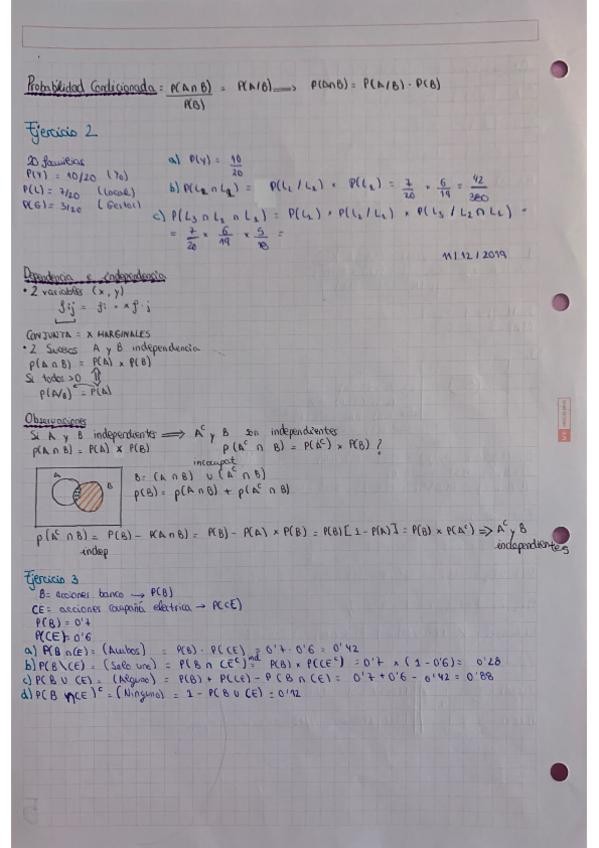 Probabilidad Condicionada = P(A∩B)/P(B) = P(A/B) ⟹ P(A∩B) = P(A/B) · P(B)
Ejercicio 2
20 familias
P(Y) = 10/20 (Yo)
P(L) = 7/20 (Local)
P(G) = 3/20 (Gestor)
a) P(Y) = 10/20
b) P(L₂ ∩ L₁) = P(L₁ / L₂) × P(L₂) = 7/20 × 6/19 = 42/380
c) P(L₃ ∩ L₂ ∩ L₁) = P(L₁) × P(L₂ / L₁) × P(L₃ / L₂ ∩ L₁) =
= 7/20 × 6/19 × 5/18 =
11/12/2019
Dependencia e independencia
• 2 variables (x, y)
fij = fi· × f·j
CONJUNTA = X MARGINALES
• 2 Sucesos A y B independencia
P(A ∩ B) = P(A) × P(B)
Si todos >0 ⇕
P(A/B) = P(A)
Observaciones
Si A y B independientes ⟹ Aᶜ y B son independientes
P(A∩B) = P(A) × P(B) P(Aᶜ ∩ B) = P(Aᶜ) × P(B) ?
incompat
A B
B = (A ∩ B) ∪ (Aᶜ ∩ B)
P(B) = P(A∩B) + P(Aᶜ∩B)
P(Aᶜ∩B) = P(B) - P(A∩B) = P(B) - P(A) × P(B) = P(B)[1-P(A)] = P(B) × P(Aᶜ) ⟹ Aᶜ y B
indep independientes
Ejercicio 3
B = acciones banco → P(B)
CE = acciones compañia electrica → P(CE)
P(B) = 0'7
P(CE) = 0'6
a) P(B ∩ CE) = (Ambos) = P(B) · P(CE) = 0'7 · 0'6 = 0'42
b) P(B\CE) = (Solo uno) = P(B ∩ CEᶜ) ind = P(B) × P(CEᶜ) = 0'7 × (1-0'6) = 0'28
c) P(B ∪ CE) = (Alguno) = P(B) + P(CE) - P(B ∩ CE) = 0'7 + 0'6 - 0'42 = 0'88
d) P(B ∩ CE)ᶜ = (Ninguno) = 1 - P(B ∪ CE) = 0'12